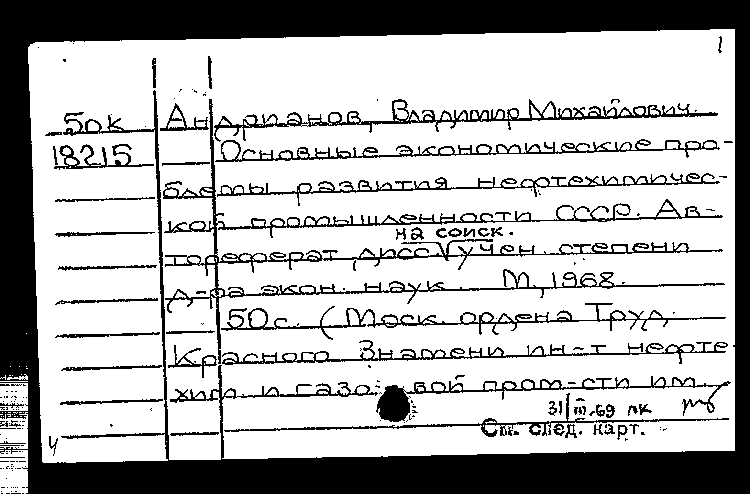 1
5ок Андрианов, Владимир Михайлович.
18215 Основные экономические про-
блемы развития нефтехимичес-
кой промышленности СССР. Ав-
на соиск.
тореферат дисс √ учен. степени
д-ра экон. наук. М., 1968.
50с. (Моск. ордена Труд.
Красного Знамени ин-т нефте-
хим. и газовой пром-сти им.
31/III.69 лк
См. след. карт.